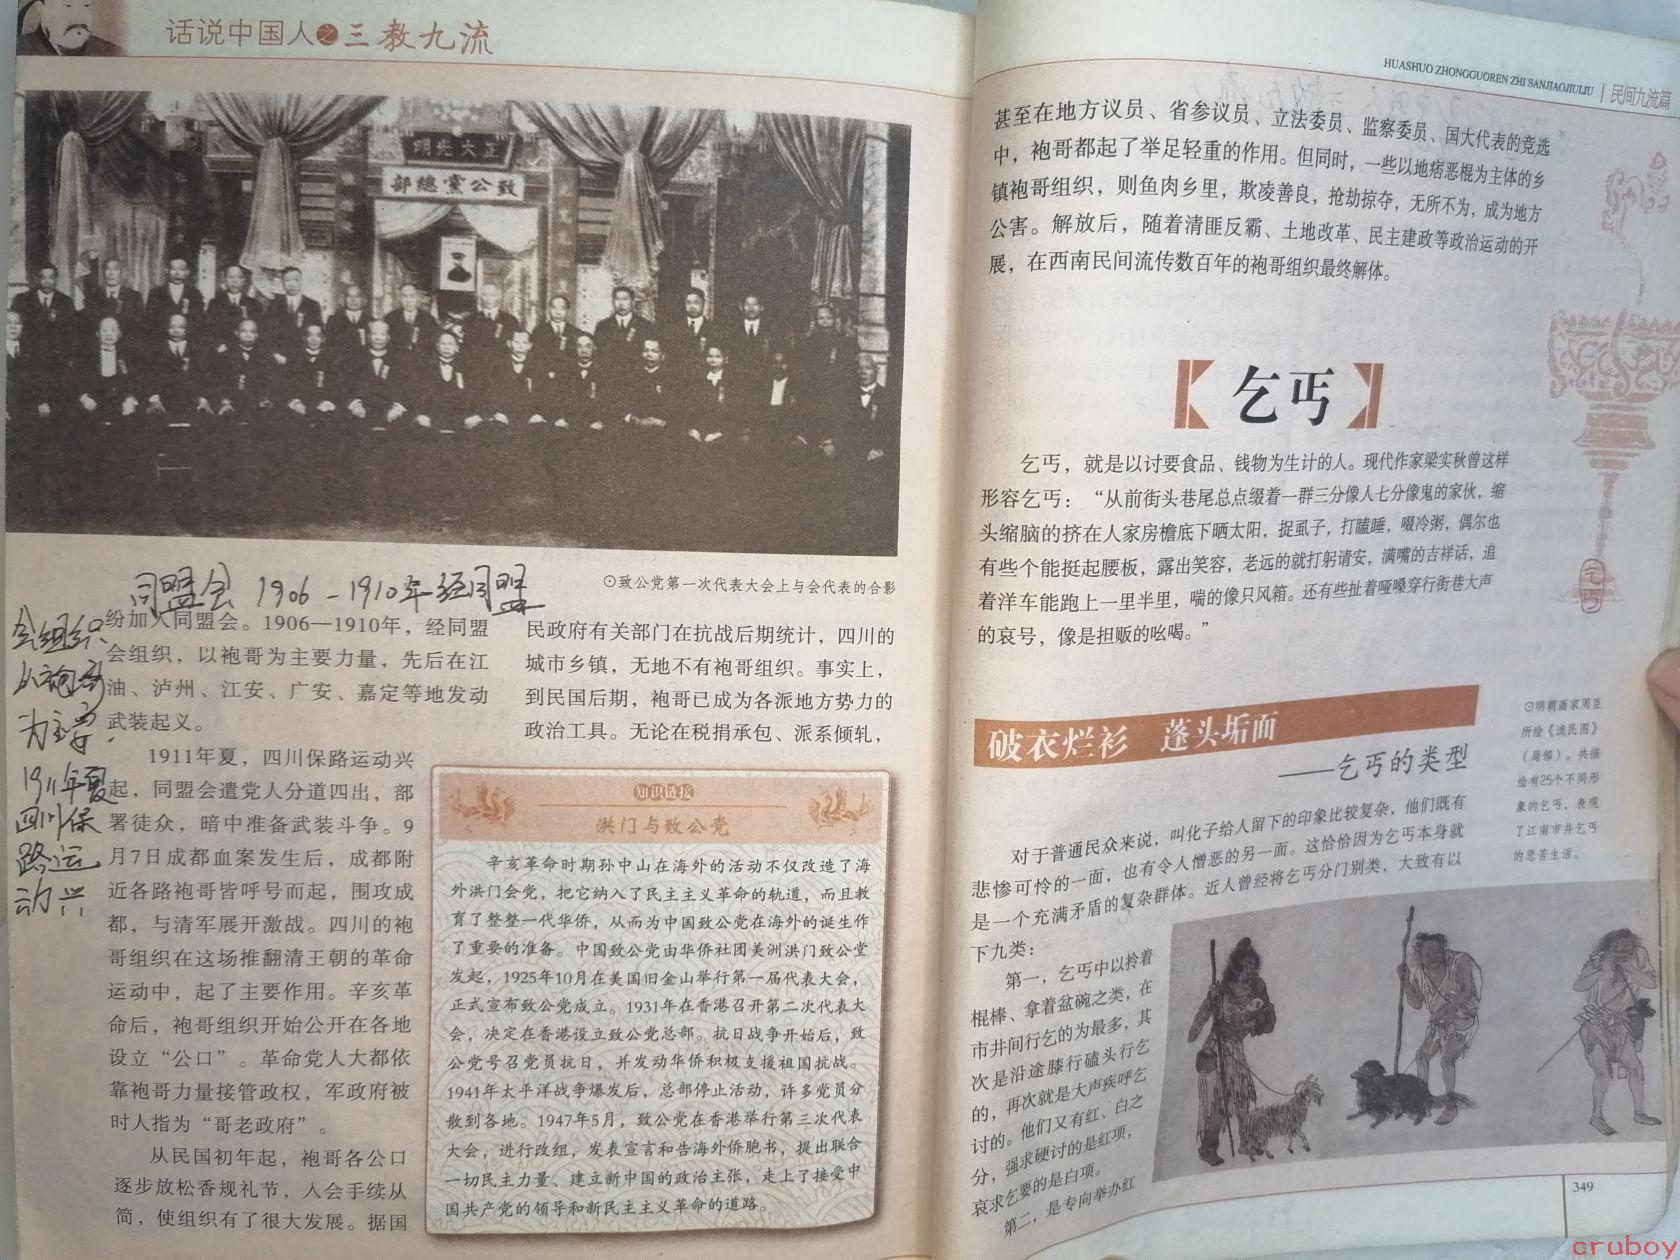 话说中国人之三教九流
正大光明
致公党总部
⊙致公党第一次代表大会上与会代表的合影
同盟会 1906-1910年经同盟
会组织
从袍哥
为主要.
1911年夏
四川保
路运
动兴
纷加入同盟会。1906—1910年，经同盟
会组织，以袍哥为主要力量，先后在江
油、泸州、江安、广安、嘉定等地发动
武装起义。
1911年夏，四川保路运动兴
起，同盟会遣党人分道四出，部
署徒众，暗中准备武装斗争。9
月7日成都血案发生后，成都附
近各路袍哥皆呼号而起，围攻成
都，与清军展开激战。四川的袍
哥组织在这场推翻清王朝的革命
运动中，起了主要作用。辛亥革
命后，袍哥组织开始公开在各地
设立“公口”。革命党人大都依
靠袍哥力量接管政权，军政府被
时人指为“哥老政府”。
从民国初年起，袍哥各公口
逐步放松香规礼节，入会手续从
简，使组织有了很大发展。据国
民政府有关部门在抗战后期统计，四川的
城市乡镇，无地不有袍哥组织。事实上，
到民国后期，袍哥已成为各派地方势力的
政治工具。无论在税捐承包、派系倾轧，
知识链接
洪门与致公党
辛亥革命时期孙中山在海外的活动不仅改造了海
外洪门会党，把它纳入了民主主义革命的轨道，而且教
育了整整一代华侨，从而为中国致公党在海外的诞生作
了重要的准备。中国致公党由华侨社团美洲洪门致公堂
发起，1925年10月在美国旧金山举行第一届代表大会，
正式宣布致公党成立。1931年在香港召开第二次代表大
会，决定在香港设立致公党总部。抗日战争开始后，致
公党号召党员抗日，并发动华侨积极支援祖国抗战。
1941年太平洋战争爆发后，总部停止活动，许多党员分
散到各地。1947年5月，致公党在香港举行第三次代表
大会，进行改组，发表宣言和告海外侨胞书，提出联合
一切民主力量、建立新中国的政治主张，走上了接受中
国共产党的领导和新民主主义革命的道路。
HUASHUO ZHONGGUOREN ZHI SANJIAOJIULIU | 民间九流篇
甚至在地方议员、省参议员、立法委员、监察委员、国大代表的竞选
中，袍哥都起了举足轻重的作用。但同时，一些以地痞恶棍为主体的乡
镇袍哥组织，则鱼肉乡里，欺凌善良，抢劫掠夺，无所不为，成为地方
公害。解放后，随着清匪反霸、土地改革、民主建政等政治运动的开
展，在西南民间流传数百年的袍哥组织最终解体。
【乞丐】
乞丐，就是以讨要食品、钱物为生计的人。现代作家梁实秋曾这样
形容乞丐：“从前街头巷尾总点缀着一群三分像人七分像鬼的家伙，缩
头缩脑的挤在人家房檐底下晒太阳，捉虱子，打瞌睡，啜冷粥，偶尔也
有些个能挺起腰板，露出笑容，老远的就打躬请安，满嘴的吉祥话，追
着洋车能跑上一里半里，喘的像只风箱。还有些扯着哑嗓穿行街巷大声
的哀号，像是担贩的吆喝。”
乞丐
破衣烂衫 蓬头垢面
——乞丐的类型
⊙明朝画家周臣
所绘《流民图》
（局部）。共描
绘有25个不同形
象的乞丐，表现
了江南市井乞丐
的悲苦生活。
对于普通民众来说，叫化子给人留下的印象比较复杂，他们既有
悲惨可怜的一面，也有令人憎恶的另一面。这恰恰因为乞丐本身就
是一个充满矛盾的复杂群体。近人曾经将乞丐分门别类，大致有以
下九类：
第一，乞丐中以拎着
棍棒、拿着盆碗之类，在
市井间行乞的为最多，其
次是沿途膝行磕头行乞
的，再次就是大声疾呼乞
讨的。他们又有红、白之
分，强求硬讨的是红项，
哀求乞要的是白项。
第二，是专向举办红
349
cruboy